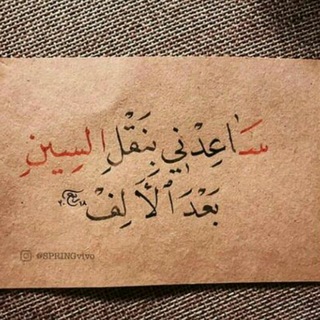 سَاعِدْنِي بِنَقْلِ السِينِ
بَعْدَ الْأَلِفْ
@SPRINGvivo